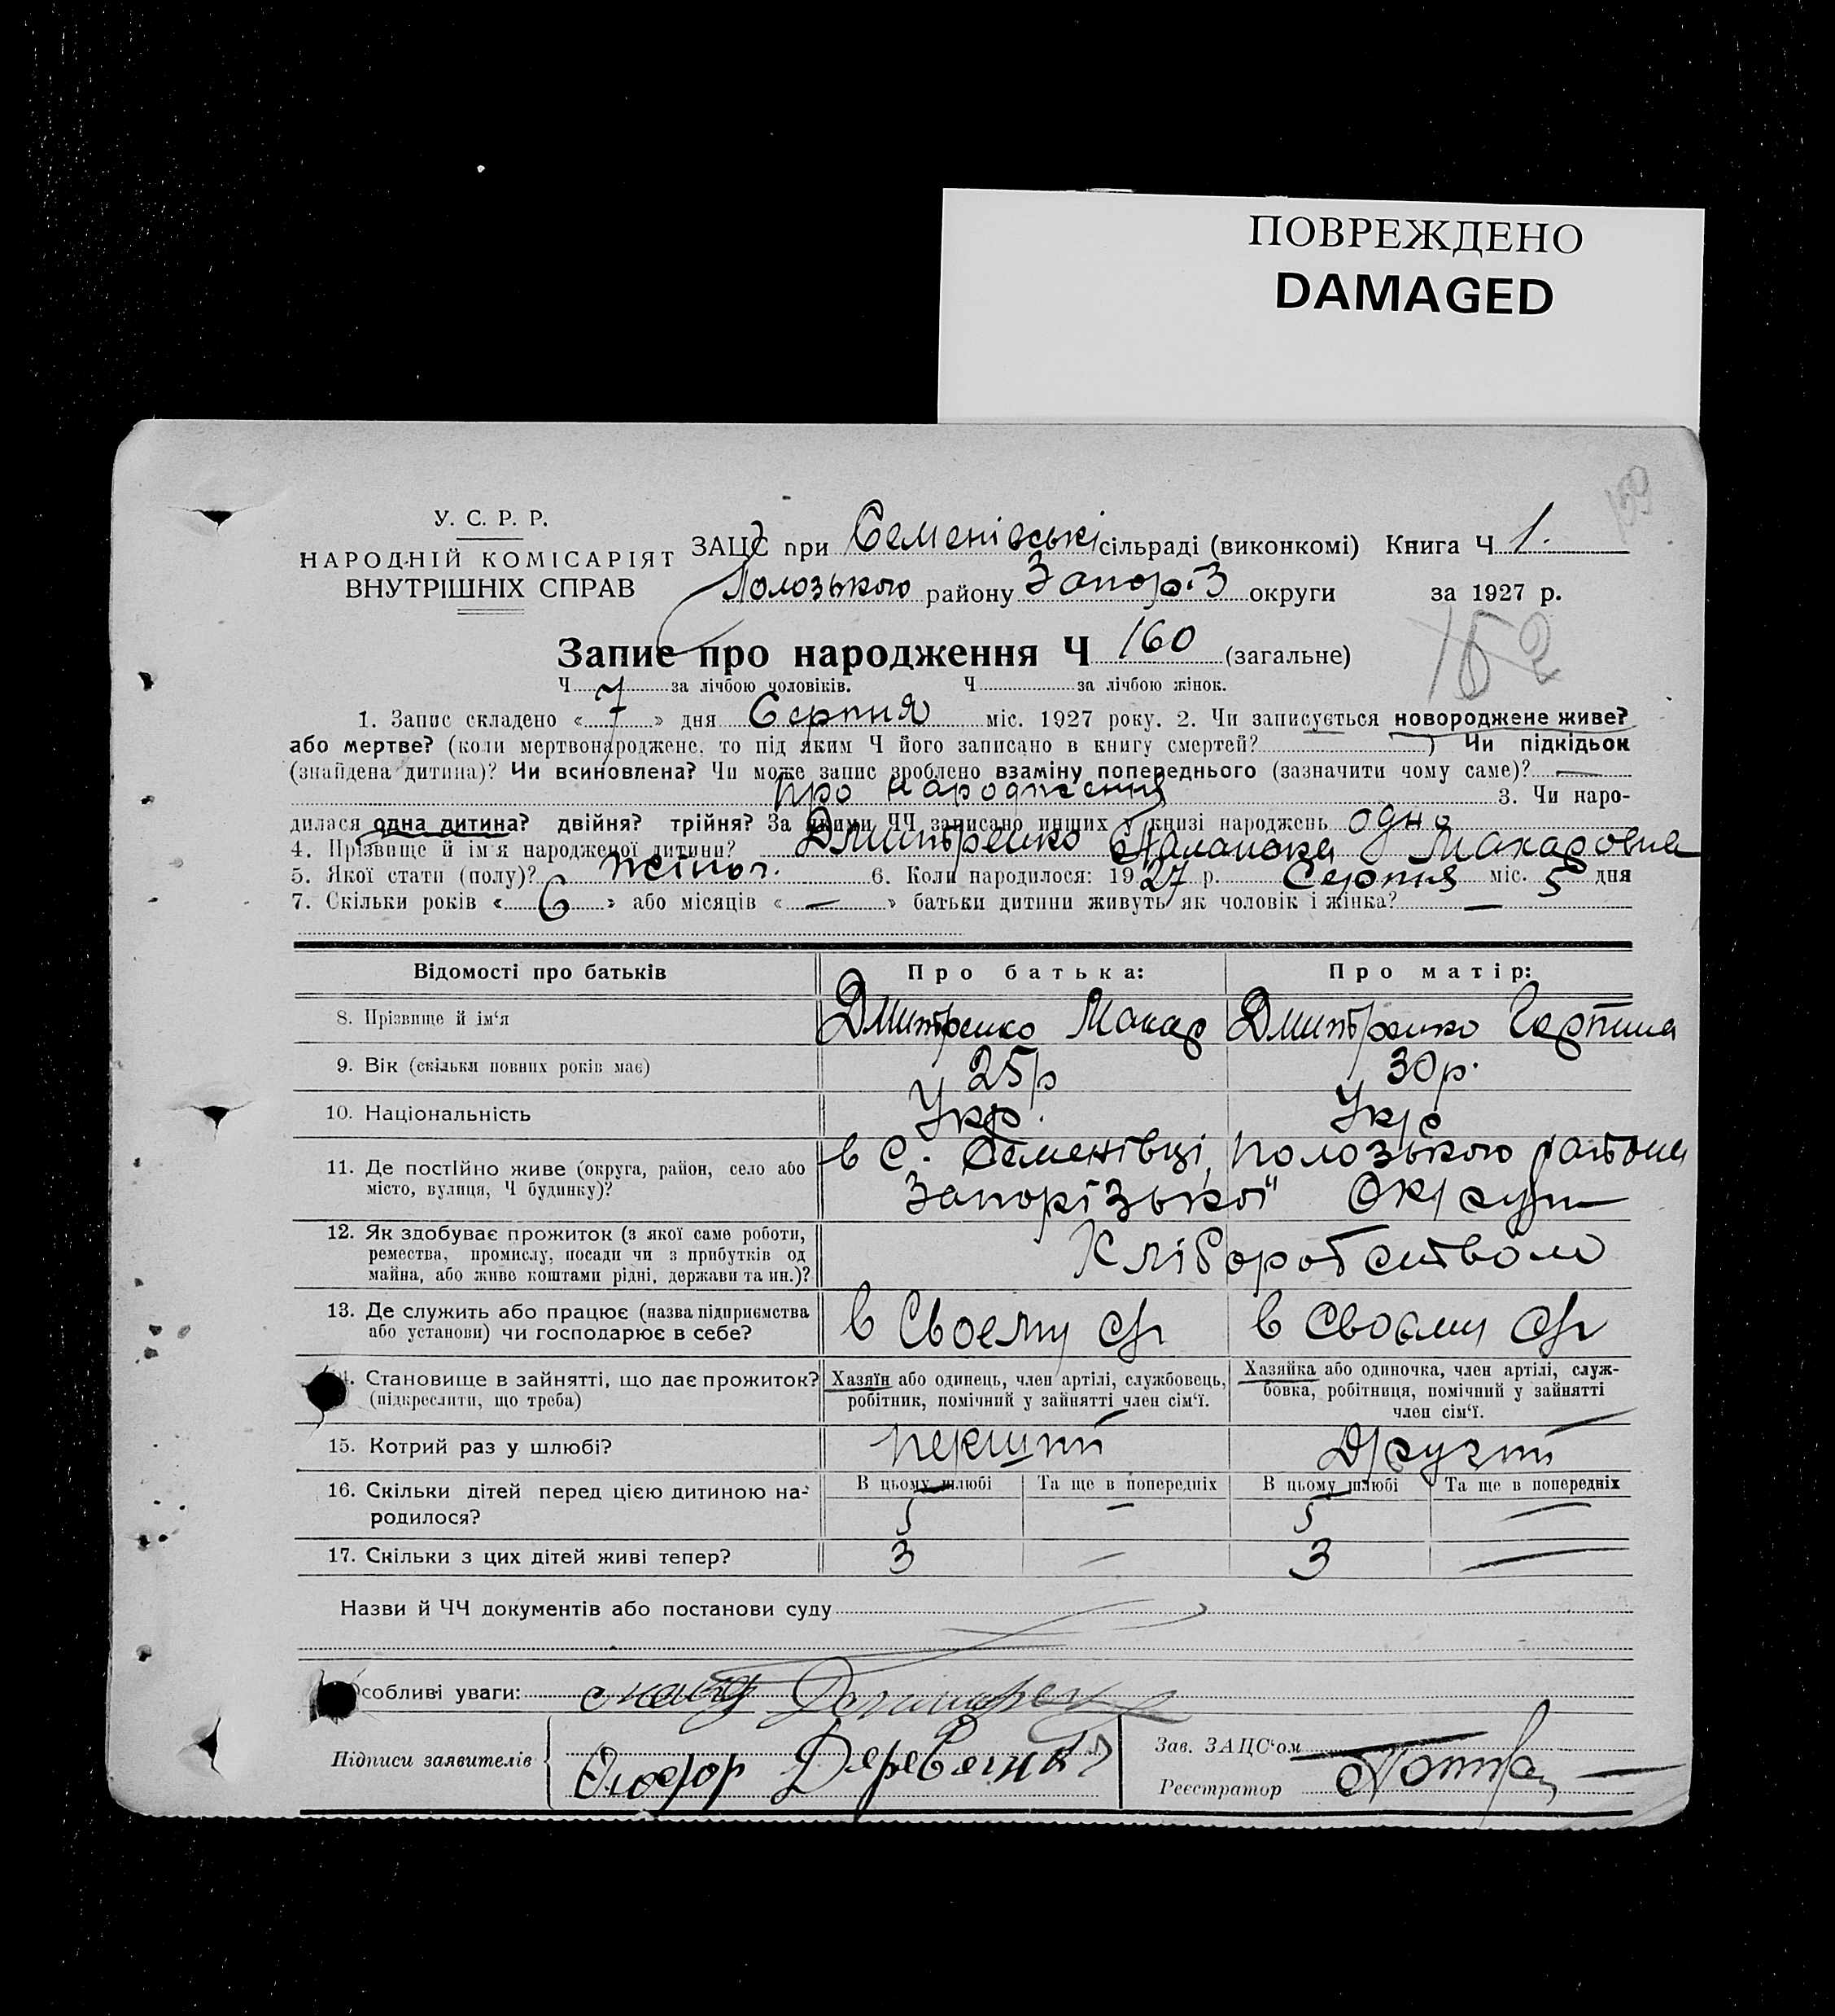 ПОВРЕЖДЕНО
DAMAGED
159
У. С. Р. Р.
НАРОДНІЙ КОМІСАРІЯТ
ВНУТРІШНІХ СПРАВ
ЗАЦС при Семенівські сільраді (виконкомі) Книга Ч 1.
Полозького району Запоріз округи за 1927 р.
Запис про народження Ч 160 (загальне)
152
Ч за лічбою чоловіків. Ч за лічбою жінок.
1. Запис складено « 7 » дня Серпня міс. 1927 року. 2. Чи записується новороджене живе?
або мертве? (коли мертвонароджене, то під яким Ч його записано в книгу смертей? ) Чи підкідьок
(знайдена дитина)? Чи всиновлена? Чи може запис зроблено взаміну попереднього (зазначити чому саме)? —
про народження 3. Чи наро-
дилася одна дитина? двійня? трійня? За якими ЧЧ записано инших у книзі народжень одно
4. Прізвище й ім'я народженої дитини? Дмитренко Палажка Макаровна
5. Якої стати (полу)? жіноч. 6. Коли народилося: 1927 р. Серпня міс. 5 дня
7. Скільки років « 6 » або місяців « — » батьки дитини живуть як чоловік і жінка? —
Відомості про батьків Про батька: Про матір:
8. Прізвище й ім'я Дмитренко Макар Дмитренко Горпина
9. Вік (скільки повних років має) 25 р 30 р.
10. Національність Укр. Укр
11. Де постійно живе (округа, район, село або місто, вулиця, Ч будинку)? в с. Семенівці, Полозького району
Запорізької Округи
12. Як здобуває прожиток (з якої саме роботи,
ремества, промислу, посади чи з прибутків од
майна, або живе коштами рідні, держави та ин.)? Хліборобством
13. Де служить або працює (назва підприємства
або установи) чи господарює в себе? в Своему в Своему
14. Становище в зайнятті, що дає прожиток?
(підкреслити, що треба)
Хазяїн або одинець, член артілі, службовець,
робітник, помічний у зайнятті член сім'ї.
Хазяйка або одиночка, член артілі, служ-
бовка, робітниця, помічний у зайнятті
член сім'ї.
15. Котрий раз у шлюбі? перший Другий
16. Скільки дітей перед цією дитиною на-
родилося?
В цьому шлюбі Та ще в попередніх В цьому шлюбі Та ще в попередніх
5 — 5 —
17. Скільки з цих дітей живі тепер? 3 — 3 —
Назви й ЧЧ документів або постанови суду
Особливі уваги:
Підписи заявителів
Зав. ЗАЦС'ом
Реєстратор